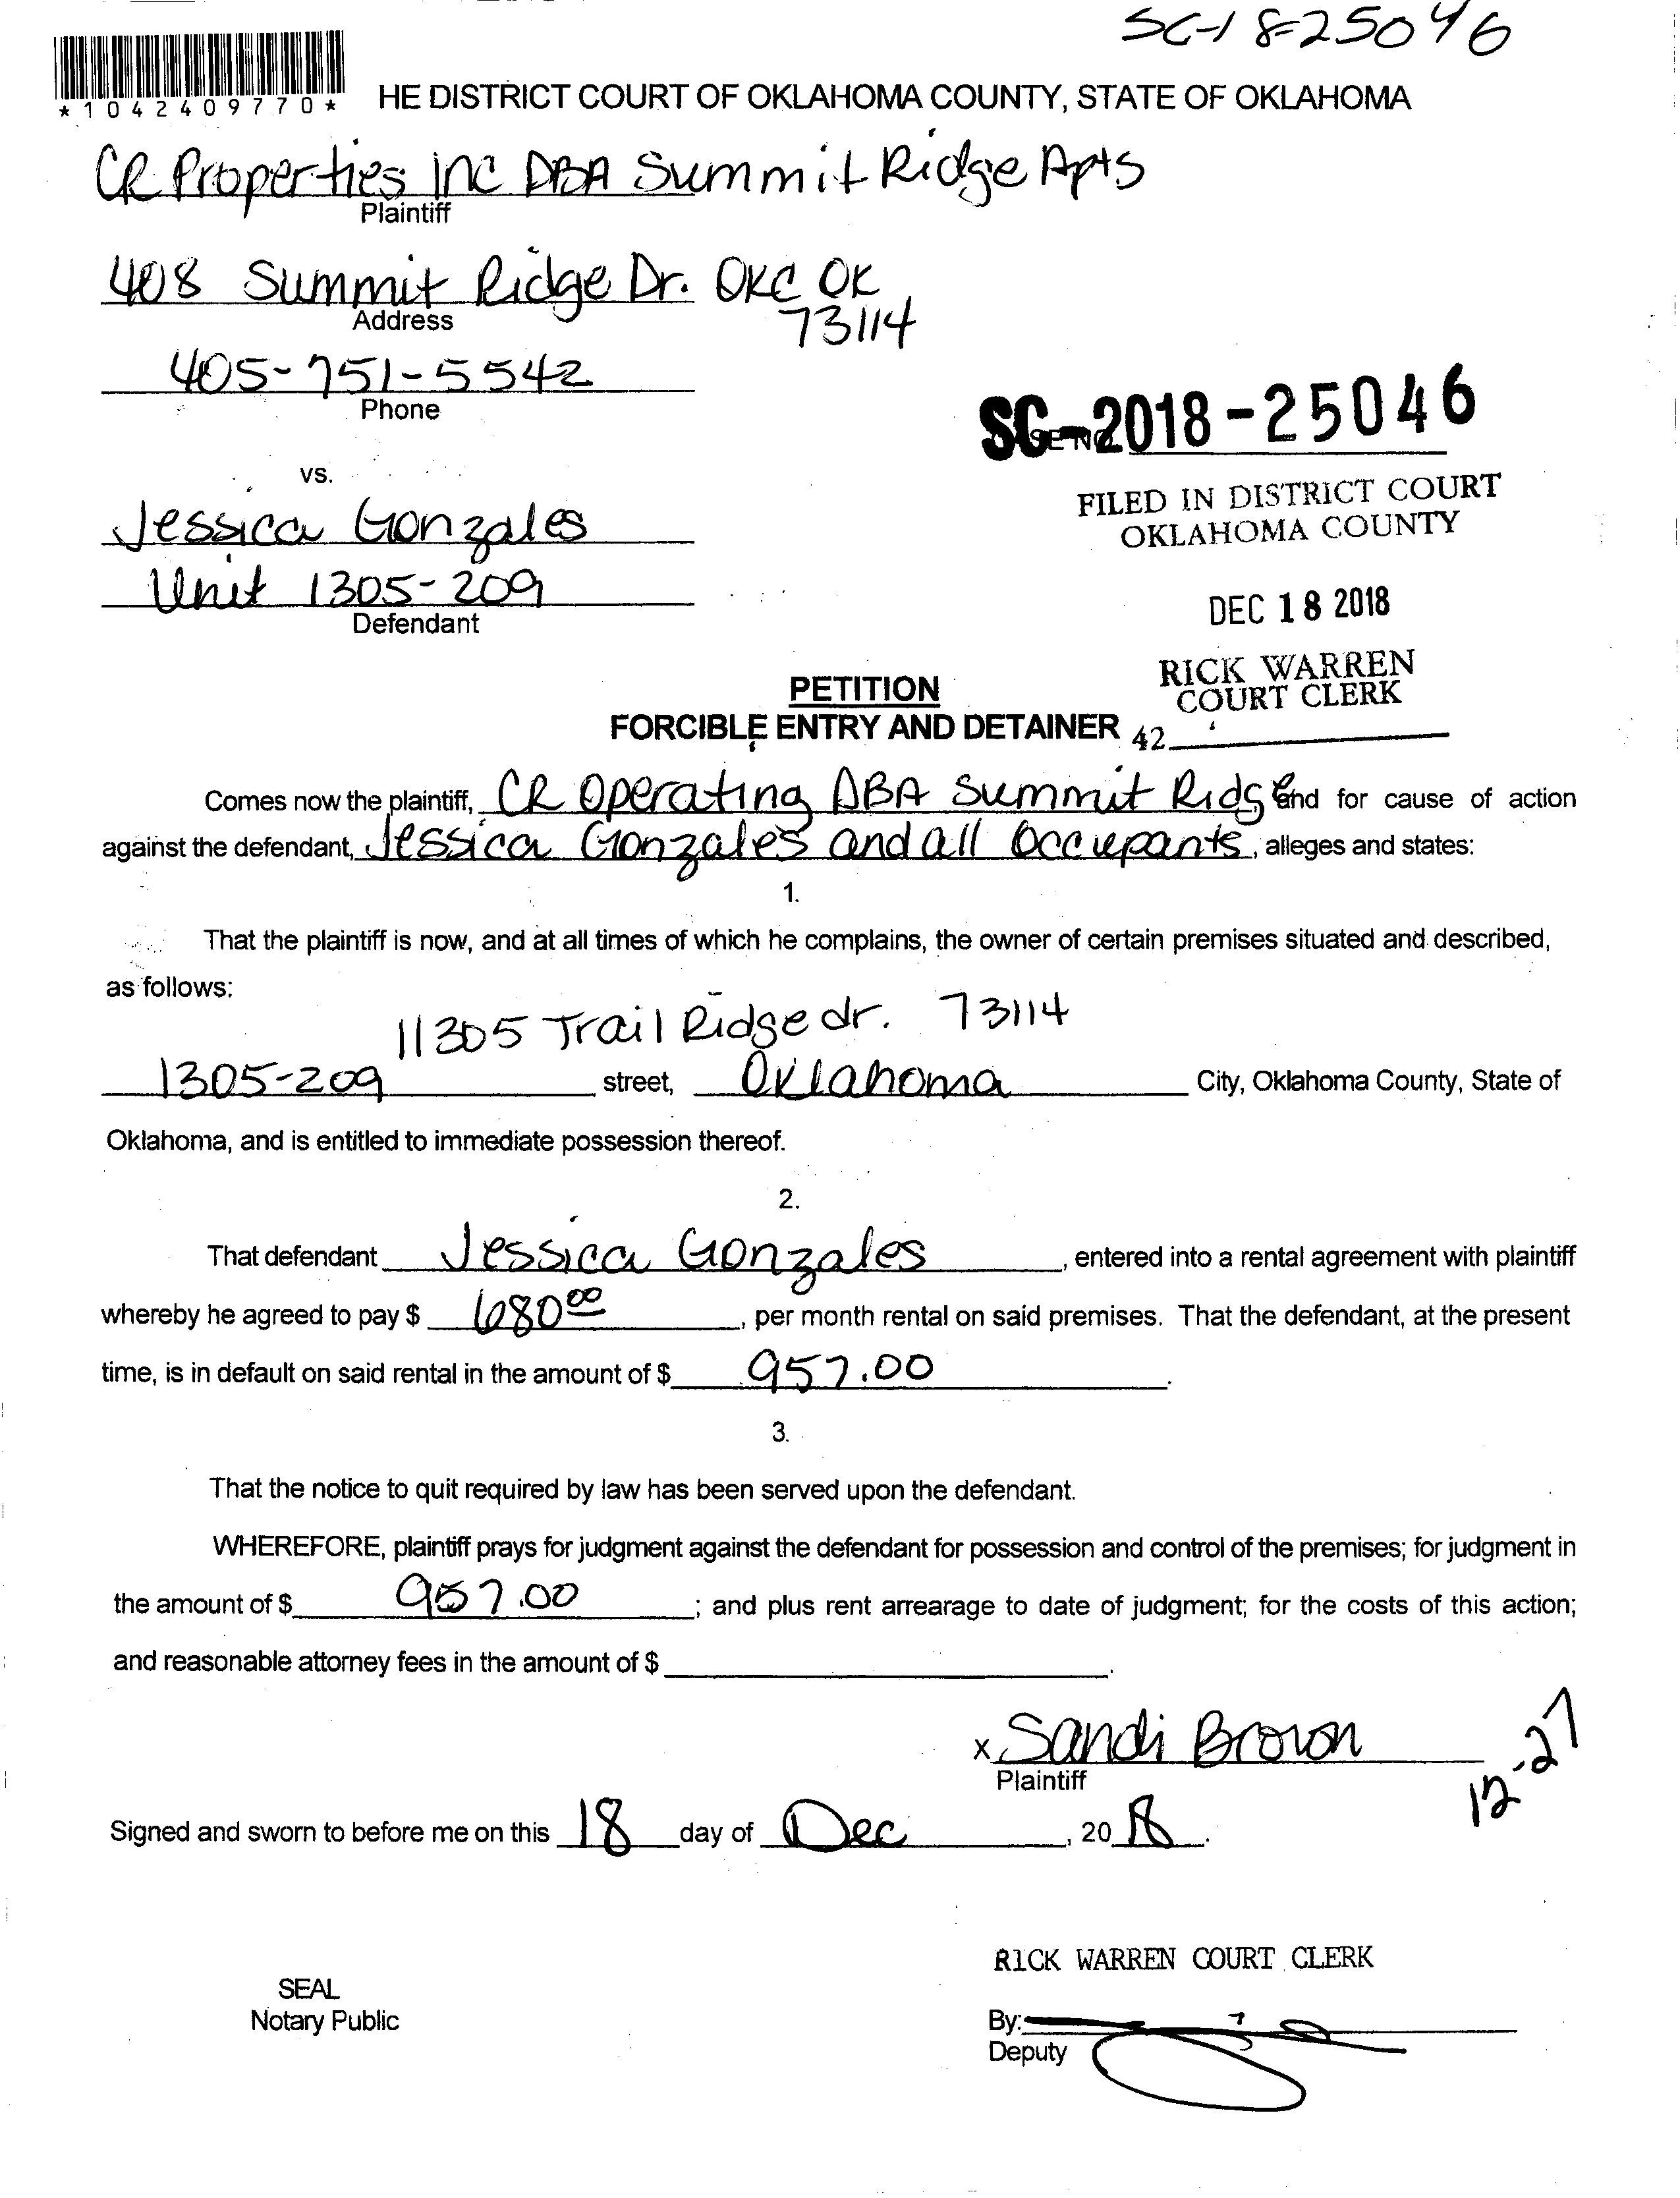 SC-18-25046
*1042409770*
HE DISTRICT COURT OF OKLAHOMA COUNTY, STATE OF OKLAHOMA
CR Properties Inc DBA Summit Ridge Apts
Plaintiff
408 Summit Ridge Dr. OKC OK
73114
Address
405-751-5542
Phone
SC-2018-25046
vs.
FILED IN DISTRICT COURT
OKLAHOMA COUNTY
Jessica Gonzales
Unit 1305-209
Defendant
DEC 18 2018
RICK WARREN
COURT CLERK
PETITION
FORCIBLE ENTRY AND DETAINER 42
Comes now the plaintiff, CR Operating DBA Summit Ridge and for cause of action
against the defendant, Jessica Gonzales and all occupants, alleges and states:
1.
That the plaintiff is now, and at all times of which he complains, the owner of certain premises situated and described,
as follows:
11305 Trail Ridge dr. 73114
1305-209 street, Oklahoma City, Oklahoma County, State of
Oklahoma, and is entitled to immediate possession thereof.
2.
That defendant Jessica Gonzales, entered into a rental agreement with plaintiff
whereby he agreed to pay $ 680 00, per month rental on said premises. That the defendant, at the present
time, is in default on said rental in the amount of $ 957.00.
3.
That the notice to quit required by law has been served upon the defendant.
WHEREFORE, plaintiff prays for judgment against the defendant for possession and control of the premises; for judgment in
the amount of $ 957.00; and plus rent arrearage to date of judgment; for the costs of this action;
and reasonable attorney fees in the amount of $ .
x Sandi Brown
Plaintiff
12-27
Signed and sworn to before me on this 18 day of Dec, 2018.
RICK WARREN COURT CLERK
SEAL
Notary Public
By:
Deputy